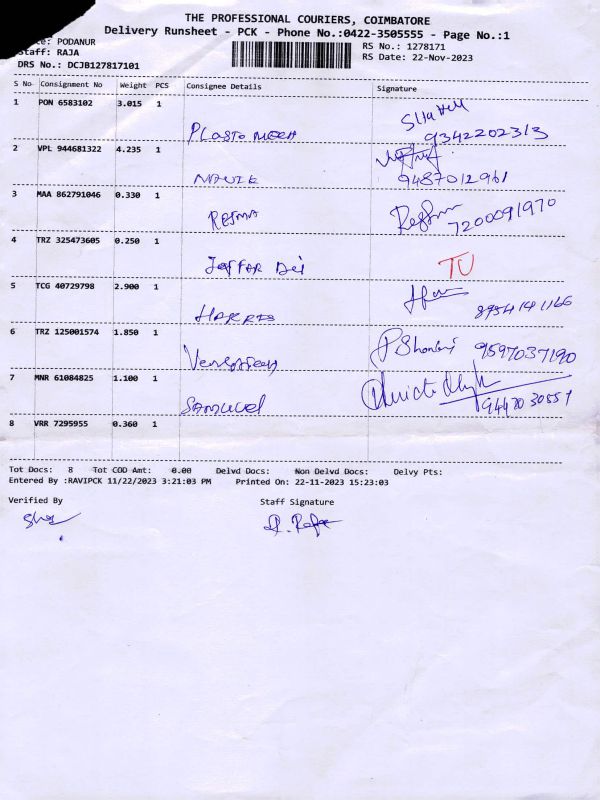 THE PROFESSIONAL COURIERS, COIMBATORE
Delivery Runsheet - PCK - Phone No.:0422-3505555 - Page No.:1
PODANUR
Staff: RAJA
RS No.: 1278171
DRS No.: DCJB127817101
RS Date: 22-Nov-2023
S No Consignment No Weight PCS Consignee Details Signature
1 PON 6583102 3.015 1
PLASTO MECH 9342202313
2 VPL 944681322 4.235 1
9487012961
3 MAA 862791046 0.330 1
RESMA 7200091970
4 TRZ 325473605 0.250 1
TU
5 TCG 40729798 2.900 1
HARRIS 8954141166
6 TRZ 125001574 1.850 1
9597037190
7 MNR 61084825 1.100 1
SAMUVEL 9447030551
8 VRR 7295955 0.360 1
Tot Docs: 8 Tot COD Amt: 0.00 Delvd Docs: Non Delvd Docs: Delvy Pts:
Entered By :RAVIPCK 11/22/2023 3:21:03 PM Printed On: 22-11-2023 15:23:03
Verified By Staff Signature